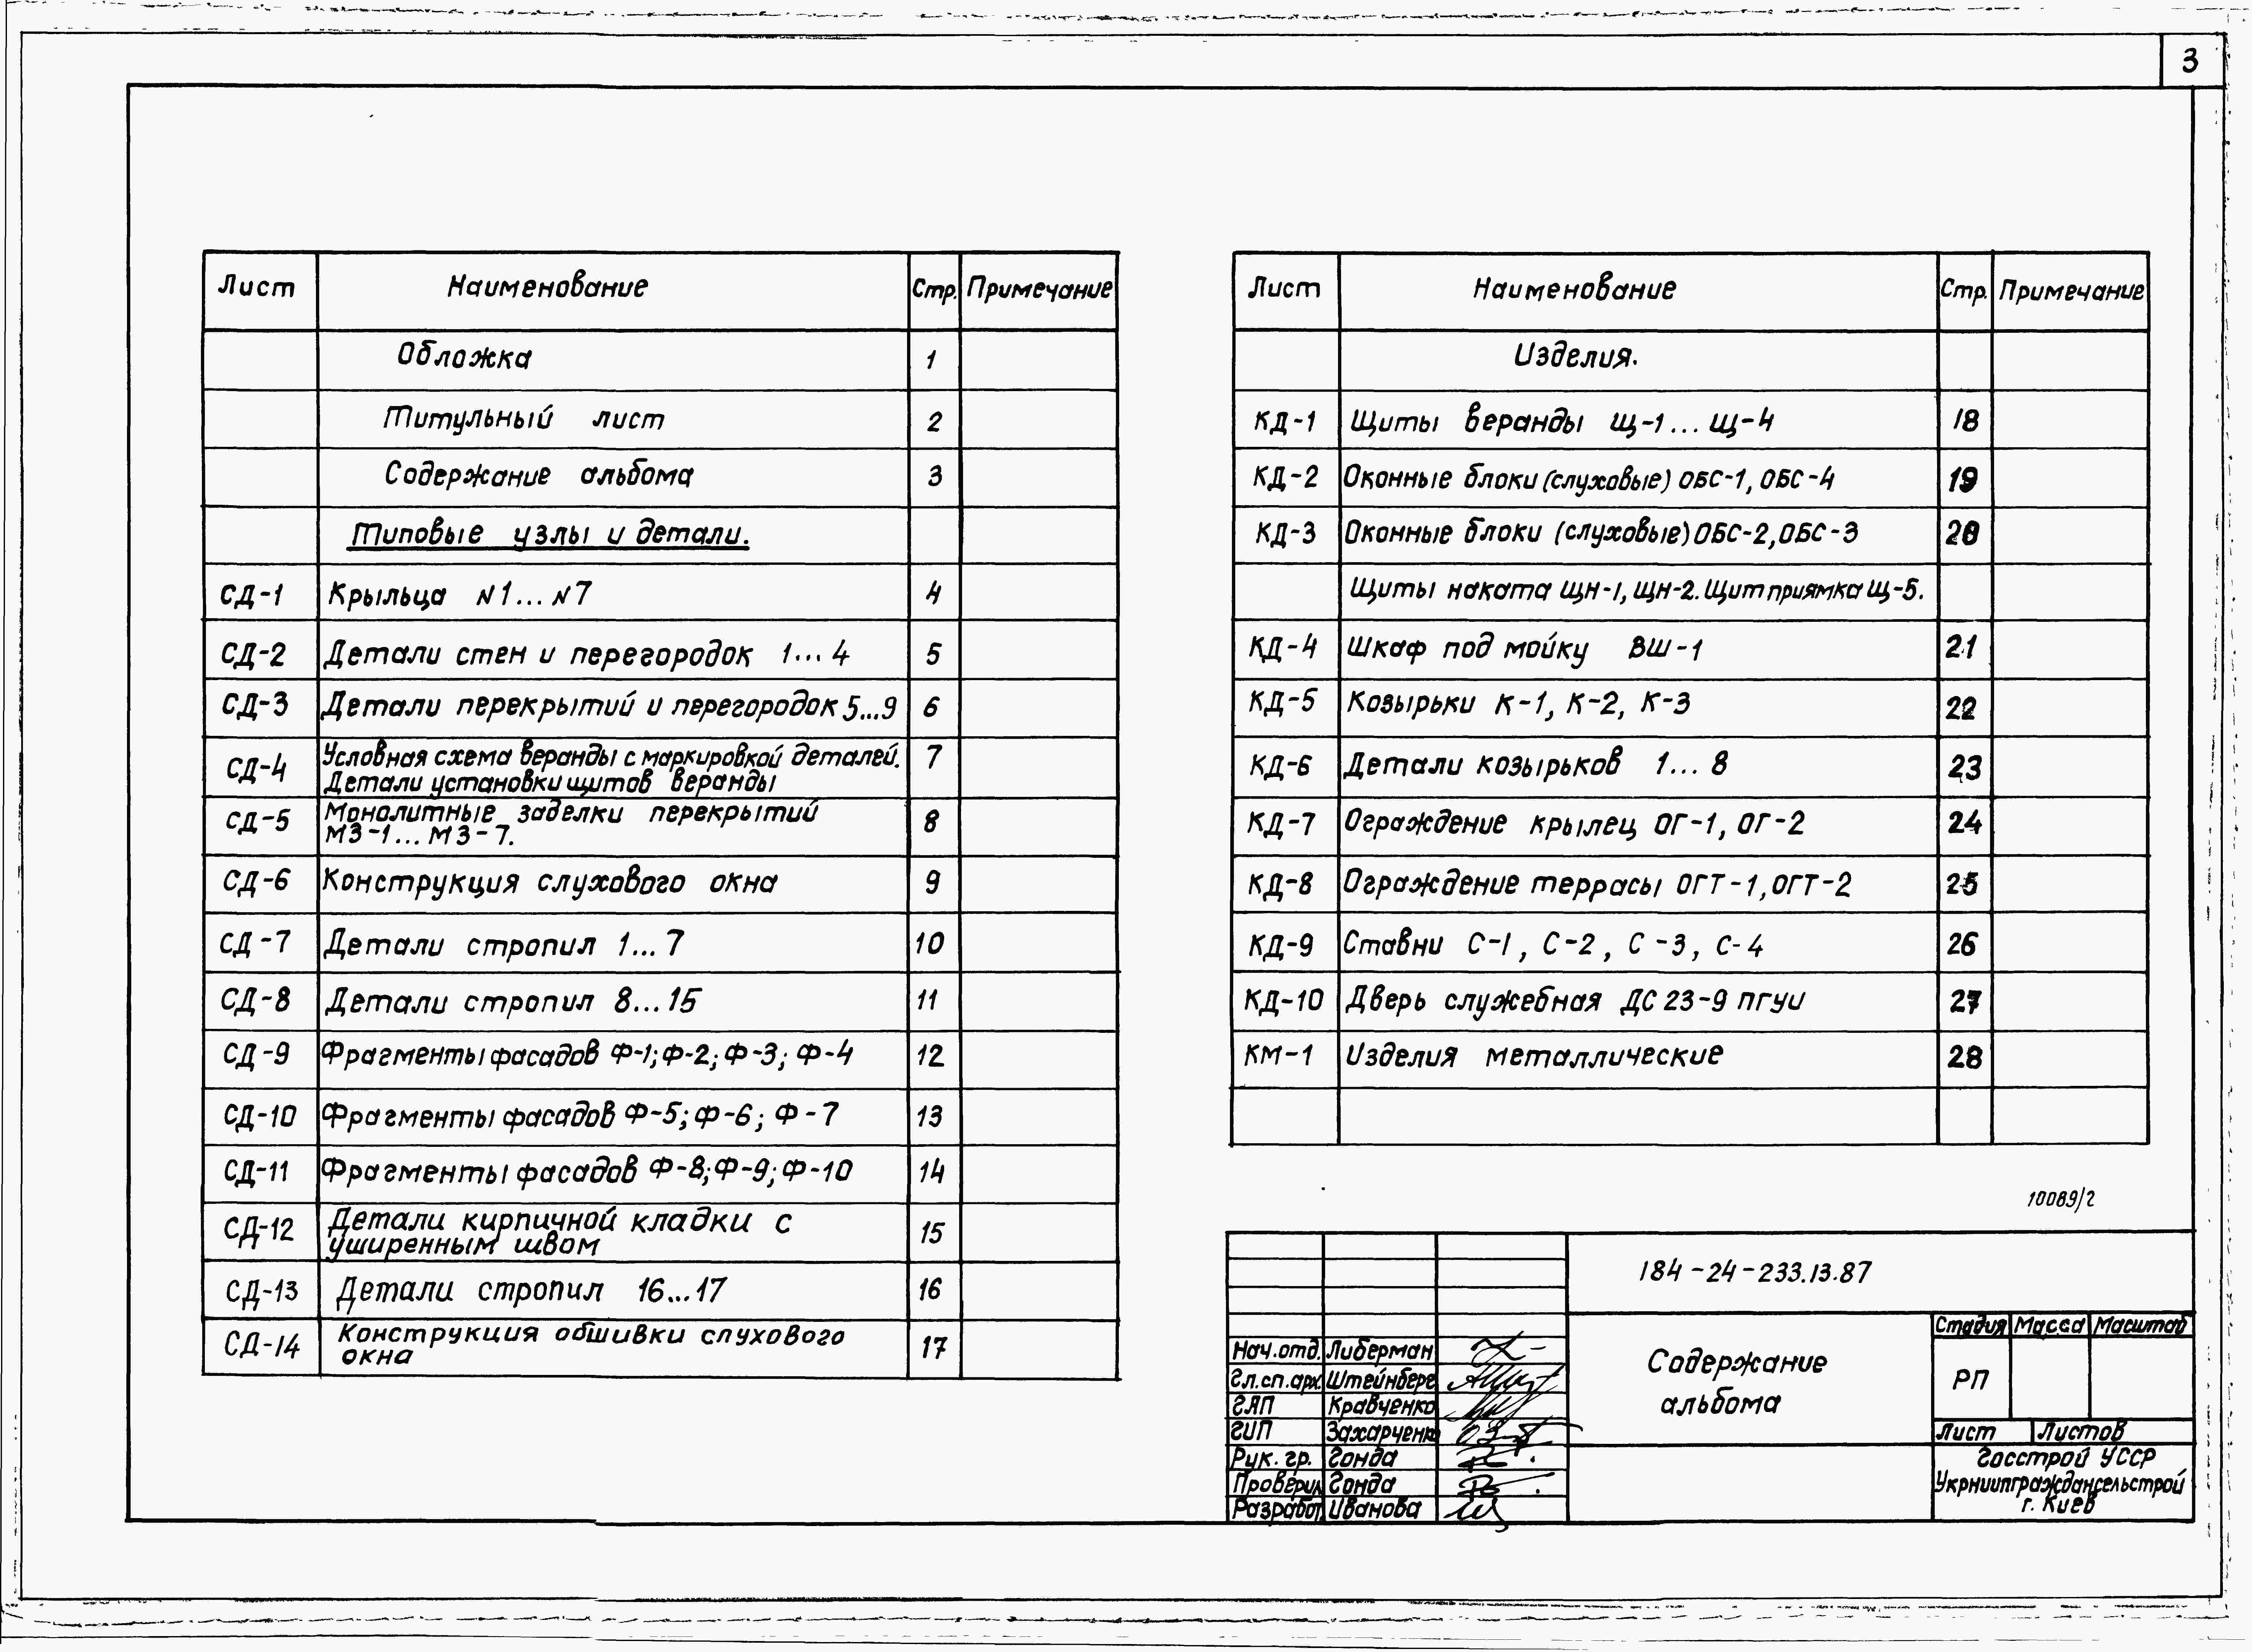 3
Лист Наименование Стр. Примечание
Обложка 1
Титульный лист 2
Содержание альбома 3
Типовые узлы и детали.
СД-1 Крыльца N1...N7 4
СД-2 Детали стен и перегородок 1...4 5
СД-3 Детали перекрытий и перегородок 5...9 6
СД-4 Условная схема веранды с маркировкой деталей. 7
Детали установки щитов веранды
СД-5 Монолитные заделки перекрытий 8
МЗ-1... МЗ-7.
СД-6 Конструкция слухового окна 9
СД-7 Детали стропил 1...7 10
СД-8 Детали стропил 8...15 11
СД-9 Фрагменты фасадов Ф-1; Ф-2; Ф-3; Ф-4 12
СД-10 Фрагменты фасадов Ф-5; Ф-6; Ф-7 13
СД-11 Фрагменты фасадов Ф-8; Ф-9; Ф-10 14
СД-12 Детали кирпичной кладки с 15
уширенным швом
СД-13 Детали стропил 16...17 16
СД-14 Конструкция обшивки слухового 17
окна
Лист Наименование Стр. Примечание
Изделия.
КД-1 Щиты веранды Щ-1... Щ-4 18
КД-2 Оконные блоки (слуховые) ОБС-1, ОБС-4 19
КД-3 Оконные блоки (слуховые) ОБС-2, ОБС-3 20
Щиты наката ЩН-1, ЩН-2. Щит приямка Щ-5.
КД-4 Шкаф под мойку ВШ-1 21
КД-5 Козырьки К-1, К-2, К-3 22
КД-6 Детали козырьков 1...8 23
КД-7 Ограждение крылец ОГ-1, ОГ-2 24
КД-8 Ограждение террасы ОГТ-1, ОГТ-2 25
КД-9 Ставни С-1, С-2, С-3, С-4 26
КД-10 Дверь служебная ДС 23-9 ПГУИ 27
КМ-1 Изделия металлические 28
10089/2
184-24-233.13.87
Содержание
альбома
Стадия Масса Масштаб
РП
Лист Листов
Госстрой УССР
Укрниипграждансельстрой
г. Киев
Нач.отд. Либерман
Гл.сп.арх. Штейнберг
ГАП Кравченко
ГИП Захарченко
Рук. гр. Гонда
Проверил Гонда
Разработ. Иванова